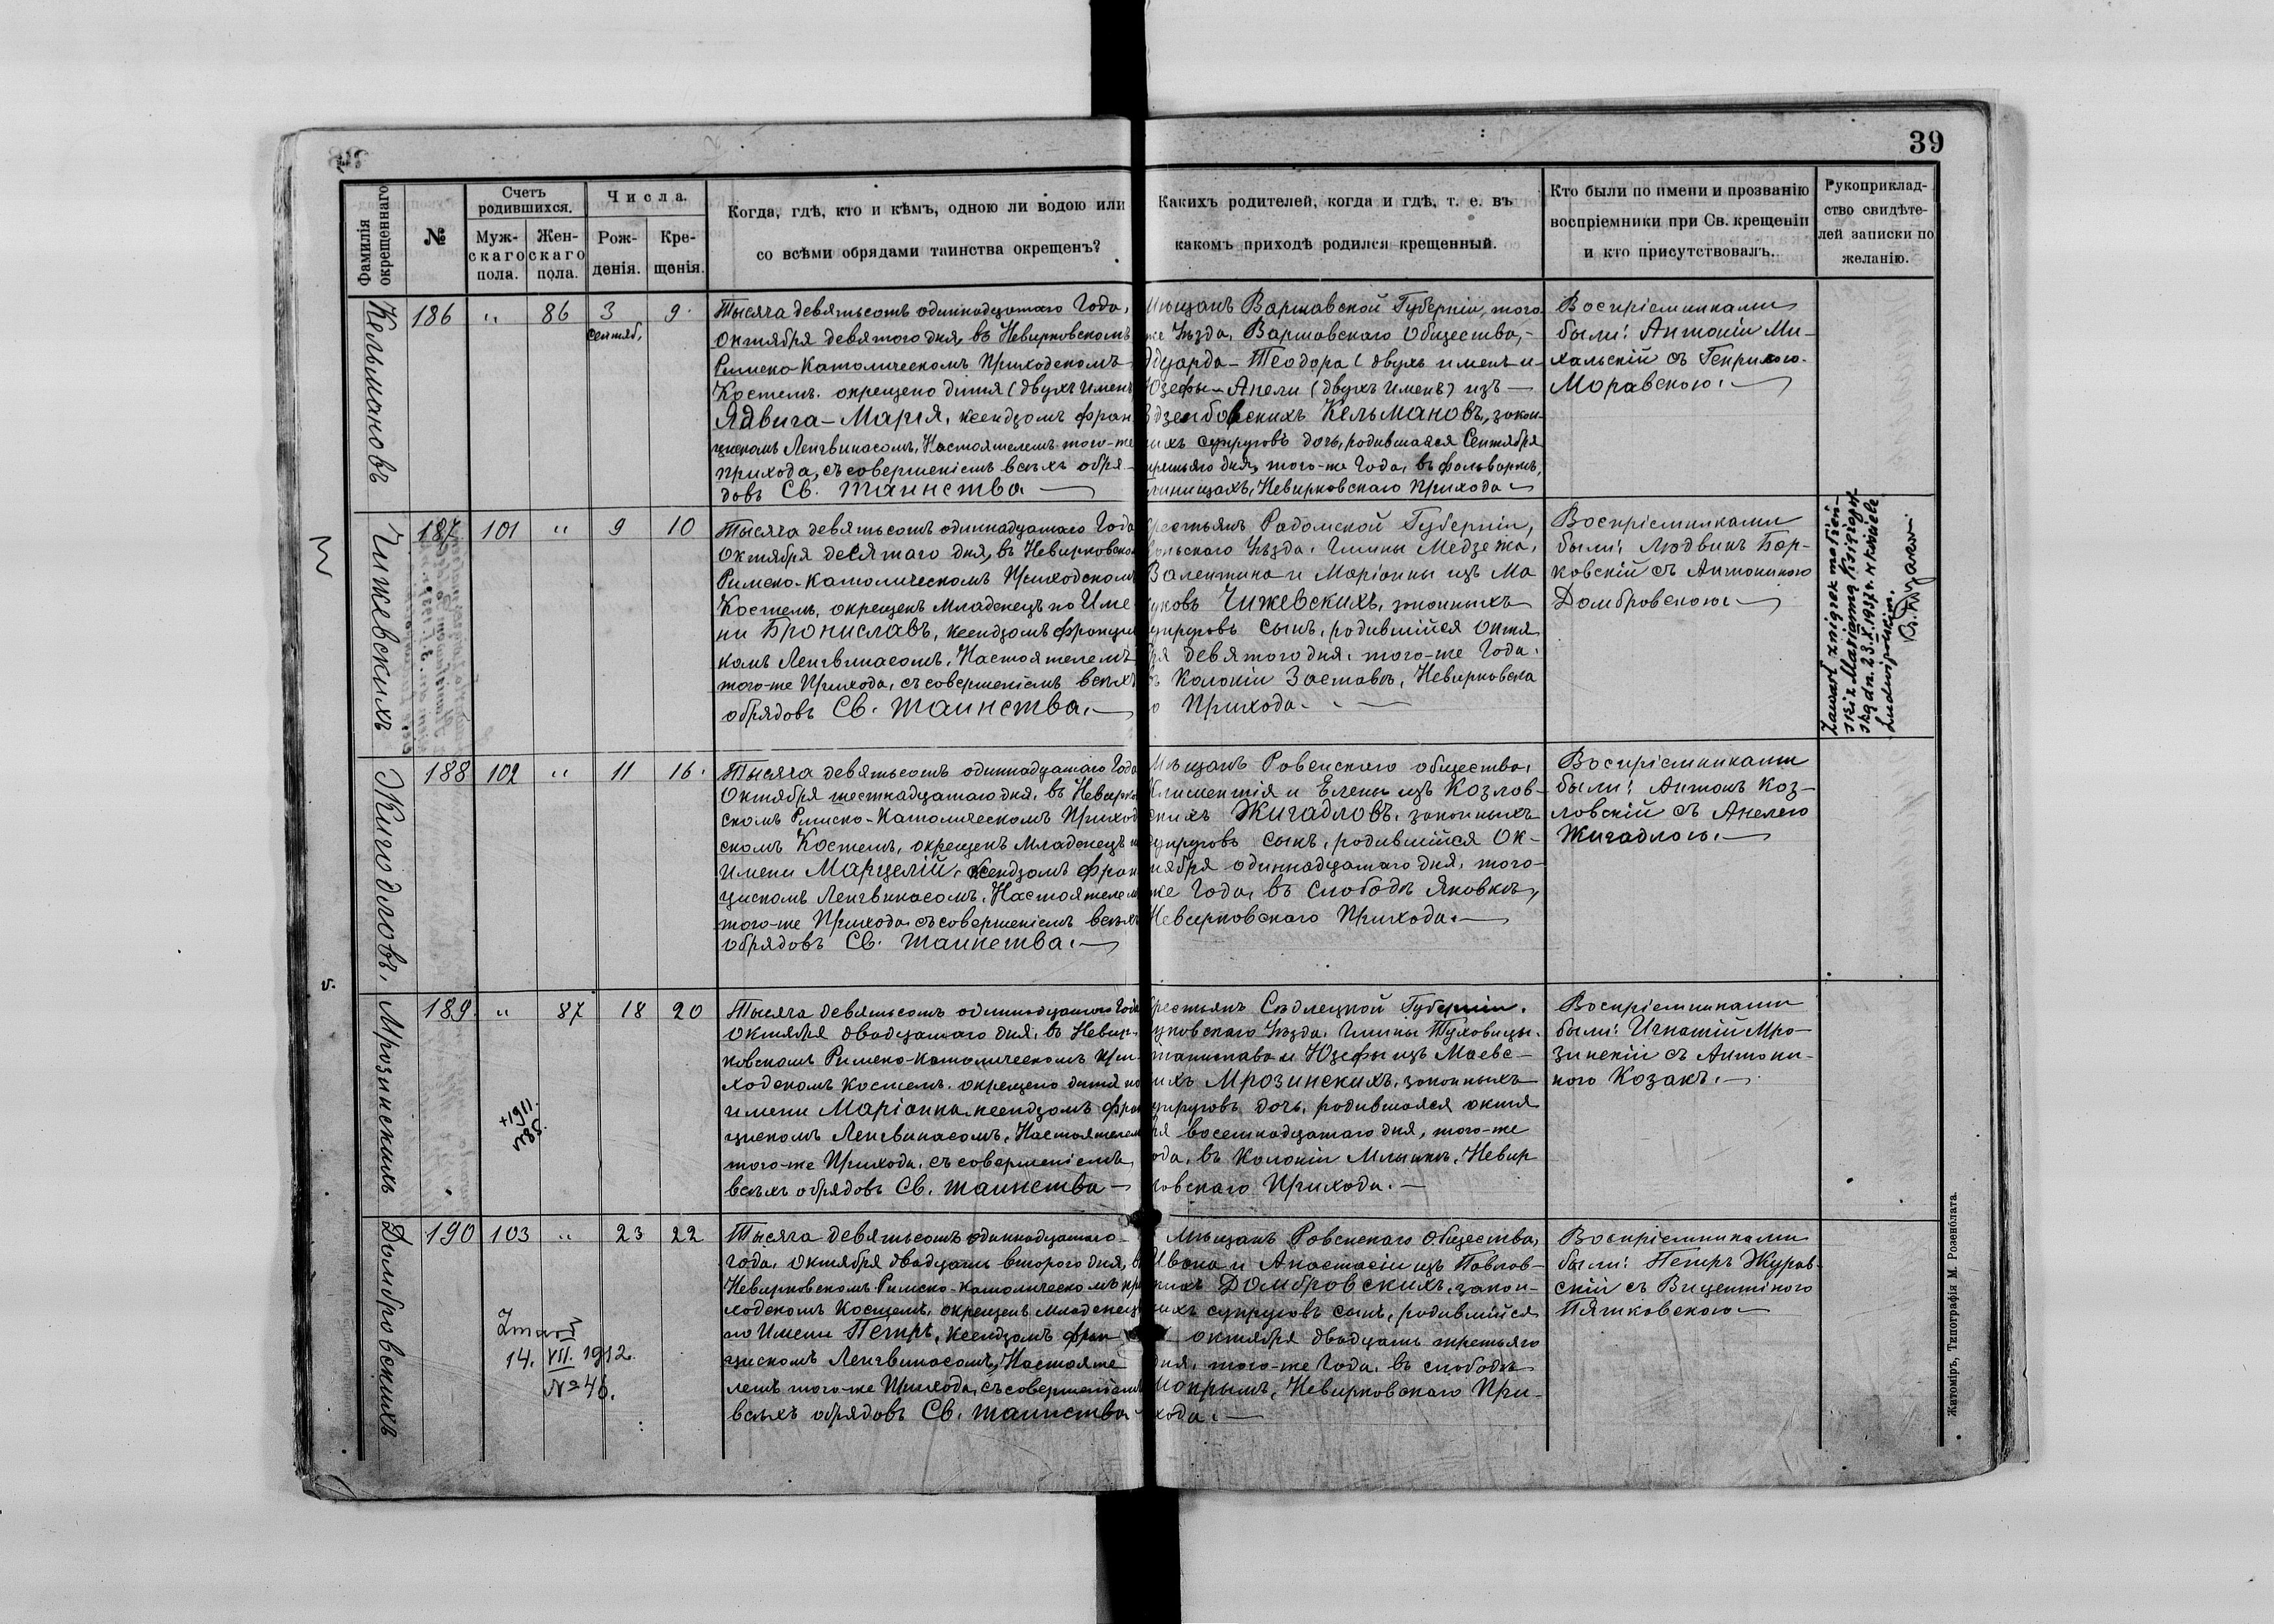 39
Фамилія окрещеннаго
№
Счетъ родившихся.
Муж-
скаго
пола.
Жен-
скаго
пола.
Числа.
Рож-
денія.
Кре-
щенія.
Когда, гдѣ, кто и кѣмъ, одною ли водою или
со всѣми обрядами таинства окрещенъ?
Какихъ родителей, когда и гдѣ, т. е. въ
какомъ приходѣ родился крещенный.
Кто были по имени и прозванію
воспріемники при Св. крещеніи
и кто присутствовалъ.
Рукоприклад-
ство свидѣте-
лей записки по
желанію.
Кельмановъ
186 " 86 3 9.
Сентяб.
Тысяча девятьсотъ одиннадцатаго Года,
Октября девятого дня, въ Невирковскомъ
Римско-Католическомъ Приходскомъ
Костелѣ. окрещено дитя (двухъ именъ
Ядвига-Марія, ксендзомъ Фран
цискомъ Ленгвинасомъ, Настоятелемъ того-же
прихода, съ совершеніемъ всѣхъ обря-
довъ Св. таинства
Мѣщанъ Варшавской Губерніи, того
же Уѣзда, Варшавскаго Общества,
Эдуарда-Теодора (двухъ именъ и
Юзефы-Анели (двухъ именъ) изъ
дзембовскихъ Кельмановъ, закон-
ныхъ супруговъ дочь, родившаяся Сентября
третьяго дня, того-же Года, въ фольваркѣ,
Невирковскаго прихода
Воспріемниками
были: Антоній Ми-
хальскій съ Генрихою
Моравскою.
Чижевскихъ
187 101 " 9 10
Тысяча девятьсотъ одиннадцатаго Года
Октября десятаго дня, въ Невирковско
Римско-Католическомъ Приходскомъ
Костелѣ, окрещенъ Младенецъ по Име-
ни Брониславъ, ксендзомъ Франци
комъ Ленгвинасомъ, Настоятелемъ
того-же Прихода, съ совершеніемъ всѣхъ
обрядовъ Св. таинства.
Крестьянъ Радомской Губерніи,
польскаго Уѣзда, Гмины Медзежа,
Валентина и Маріанны изъ Ма
уковъ Чижевскихъ, законныхъ
супруговъ сынъ, родившійся Октя
ря девятого дня, того-же Года,
въ Колоніи Заставѣ, Невирковска
о Прихода.
Воспріемниками
были: Людвикъ Бор-
ковскій съ Антониною
Домбровскою.
Zawarł związek małżeń-
ski z Marianną
dn. 23.X.1937 r. w kościele
Ludwipolskim.
Жигодловъ.
188 102 " 11 16.
Тысяча девятьсотъ одиннадцатаго Года
Октября шестнадцатаго дня, въ Невирко
скомъ Римско-Католическомъ Приход
скомъ Костелѣ, окрещенъ Младенецъ п
Имени Марцелій, ксендзомъ Фран
цискомъ Ленгвинасомъ, Настоятелем
того-же Прихода съ совершеніемъ всѣхъ
обрядовъ Св. таинства.
Мѣщанъ Ровенскаго общества,
Климентія и Елены изъ Козлов-
скихъ Жигадловъ, законныхъ
супруговъ сынъ, родившійся Ок-
тября одиннадцатаго дня, того-
же Года, въ слободѣ Яновкѣ,
Невирковскаго Прихода.
Воспріемниками
были: Антонъ Коз-
ловскій съ Анелею
Жигадлою.
Мрозинскихъ
189 " 87 18 20
+1911.
№85.
Тысяча девятьсотъ одиннадцатаго Года
Октября двадцатаго дня, въ Невир-
ковскомъ Римско-Католическомъ При-
ходскомъ Костелѣ, окрещено дитя по
имени Маріанна ксендзомъ Фран
цискомъ Ленгвинасомъ, Настоятелем
того-же Прихода, съ совершеніемъ
всѣхъ обрядовъ Св. таинства
Крестьянъ Сѣдлецкой Губерніи,
уковскаго Уѣзда, Гмины Туховицы,
танислава и Юзефы изъ Маевс-
ихъ Мрозинскихъ, законныхъ
супруговъ дочь, родившаяся октя
ря восемнадцатаго дня, того-же
ода, въ Колоніи Млынкъ, Невир
ковскаго Прихода.
Воспріемниками
были: Игнатій Мро-
зинскій съ Антони-
ною Козакъ.
Домбровскихъ
190 103 " 23 22
Zmarł
14. VII. 1912.
№ 46.
Тысяча девятьсотъ одиннадцатаго
года, Октября двадцать второго дня, в
Невирковскомъ Римско-Католическомъ При
ходскомъ Костелѣ, окрещенъ Младенецъ
по Имени Петръ, ксендзомъ Фран
цискомъ Ленгвинасомъ, Настояте
лемъ того-же Прихода, съ совершеніемъ
всѣхъ обрядовъ Св. таинства
Мѣщанъ Ровенскаго Общества,
Ивана и Анастасіи изъ Павлов-
скихъ Домбровскихъ, закон-
ныхъ супруговъ сынъ, родившійся
октября двадцать третьяго
дня, того-же Года, въ слободѣ
Мокрымъ, Невирковскаго При-
хода.
Воспріемниками
были: Петръ Журав-
скій съ Вицентіною
Пятковскою
Житомiръ, Типографія М. Розенблата.